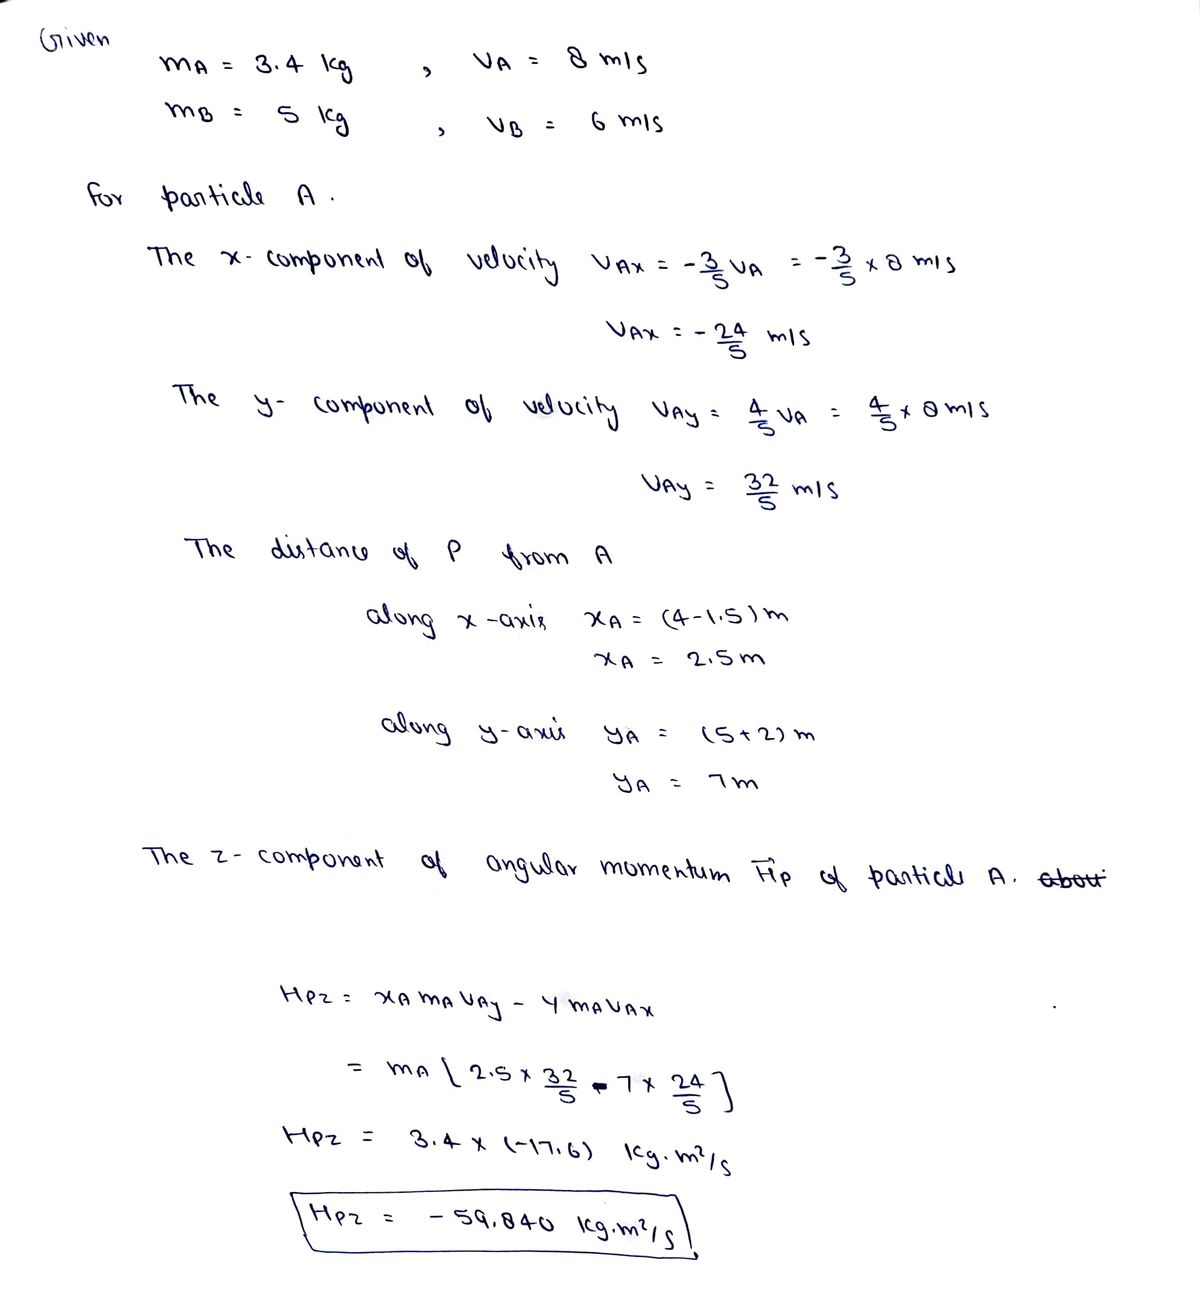 Given
mA = 3.4 kg , VA = 8 m/s
mB = 5 kg , VB = 6 m/s
for particle A.
The x-component of velocity VAx = -3/5 VA = -3/5 x 8 m/s
VAx = -24/5 m/s
The y-component of velocity VAy = 4/5 VA = 4/5 x 8 m/s
VAy = 32/5 m/s
The distance of P from A
along x-axis xA = (4-1.5)m
xA = 2.5m
along y-axis yA = (5+2)m
yA = 7m
The z-component of angular momentum Hp of particle A. about
Hpz = xA mA VAy - y mA VAx
= mA [2.5 x 32/5 - 7 x 24/5]
Hpz = 3.4 x (-17.6) kg.m²/s
Hpz = -59.840 kg.m²/s